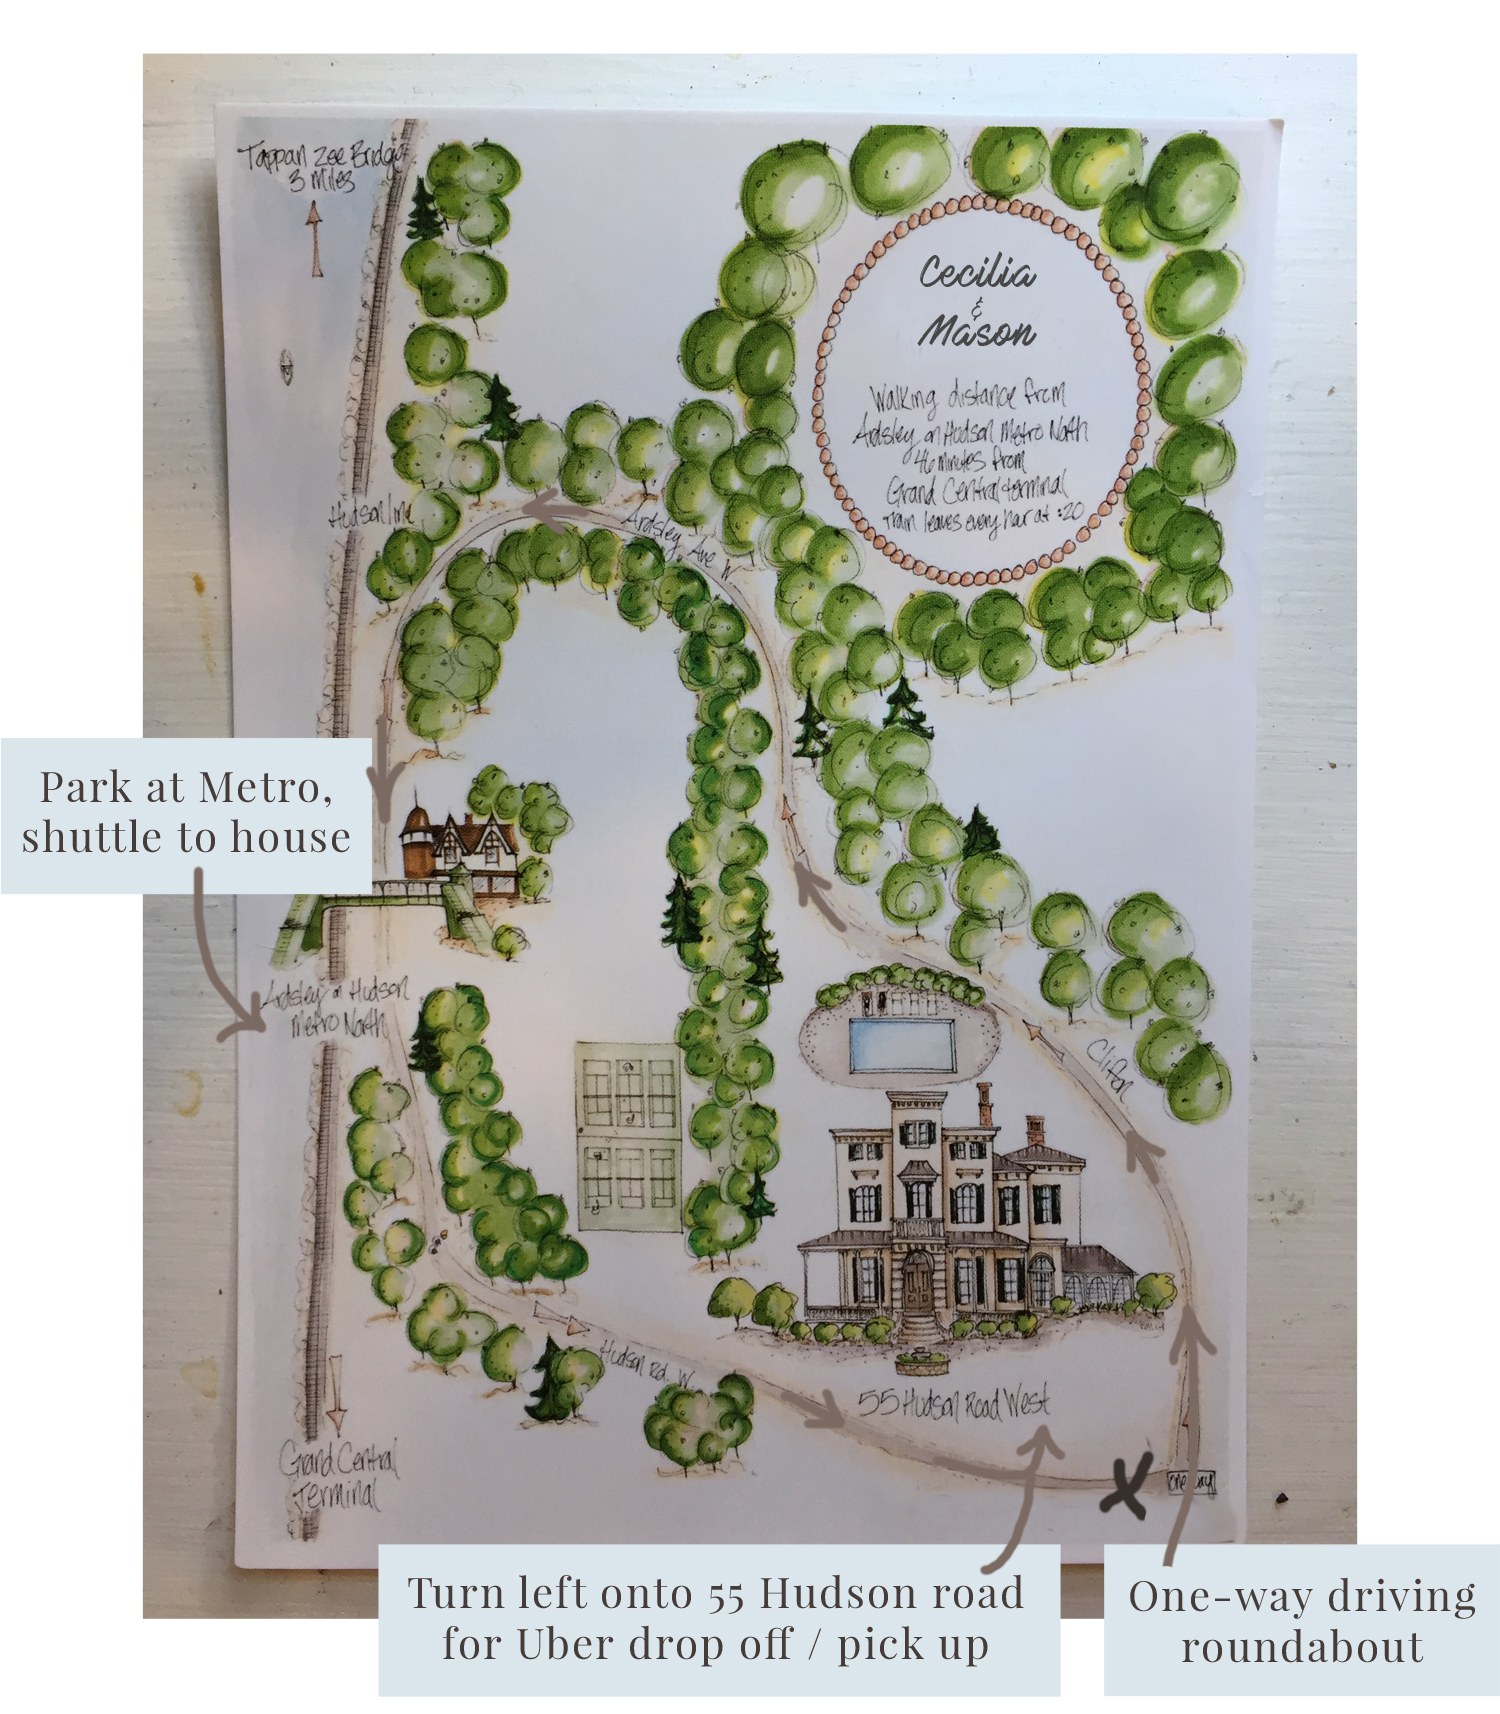 Tappan Zee Bridge
3 Miles
Cecilia
&
Mason
Walking distance from
Ardsley on Hudson Metro North
46 minutes from
Grand Central terminal
Train leaves every hour at :20
Hudson line
Ardsley Ave W
Park at Metro,
shuttle to house
Ardsley on Hudson
Metro North
Clifton
Hudson Rd. W.
55 Hudson Road West
Grand Central
Terminal
X
one way
Turn left onto 55 Hudson road
for Uber drop off / pick up
One-way driving
roundabout